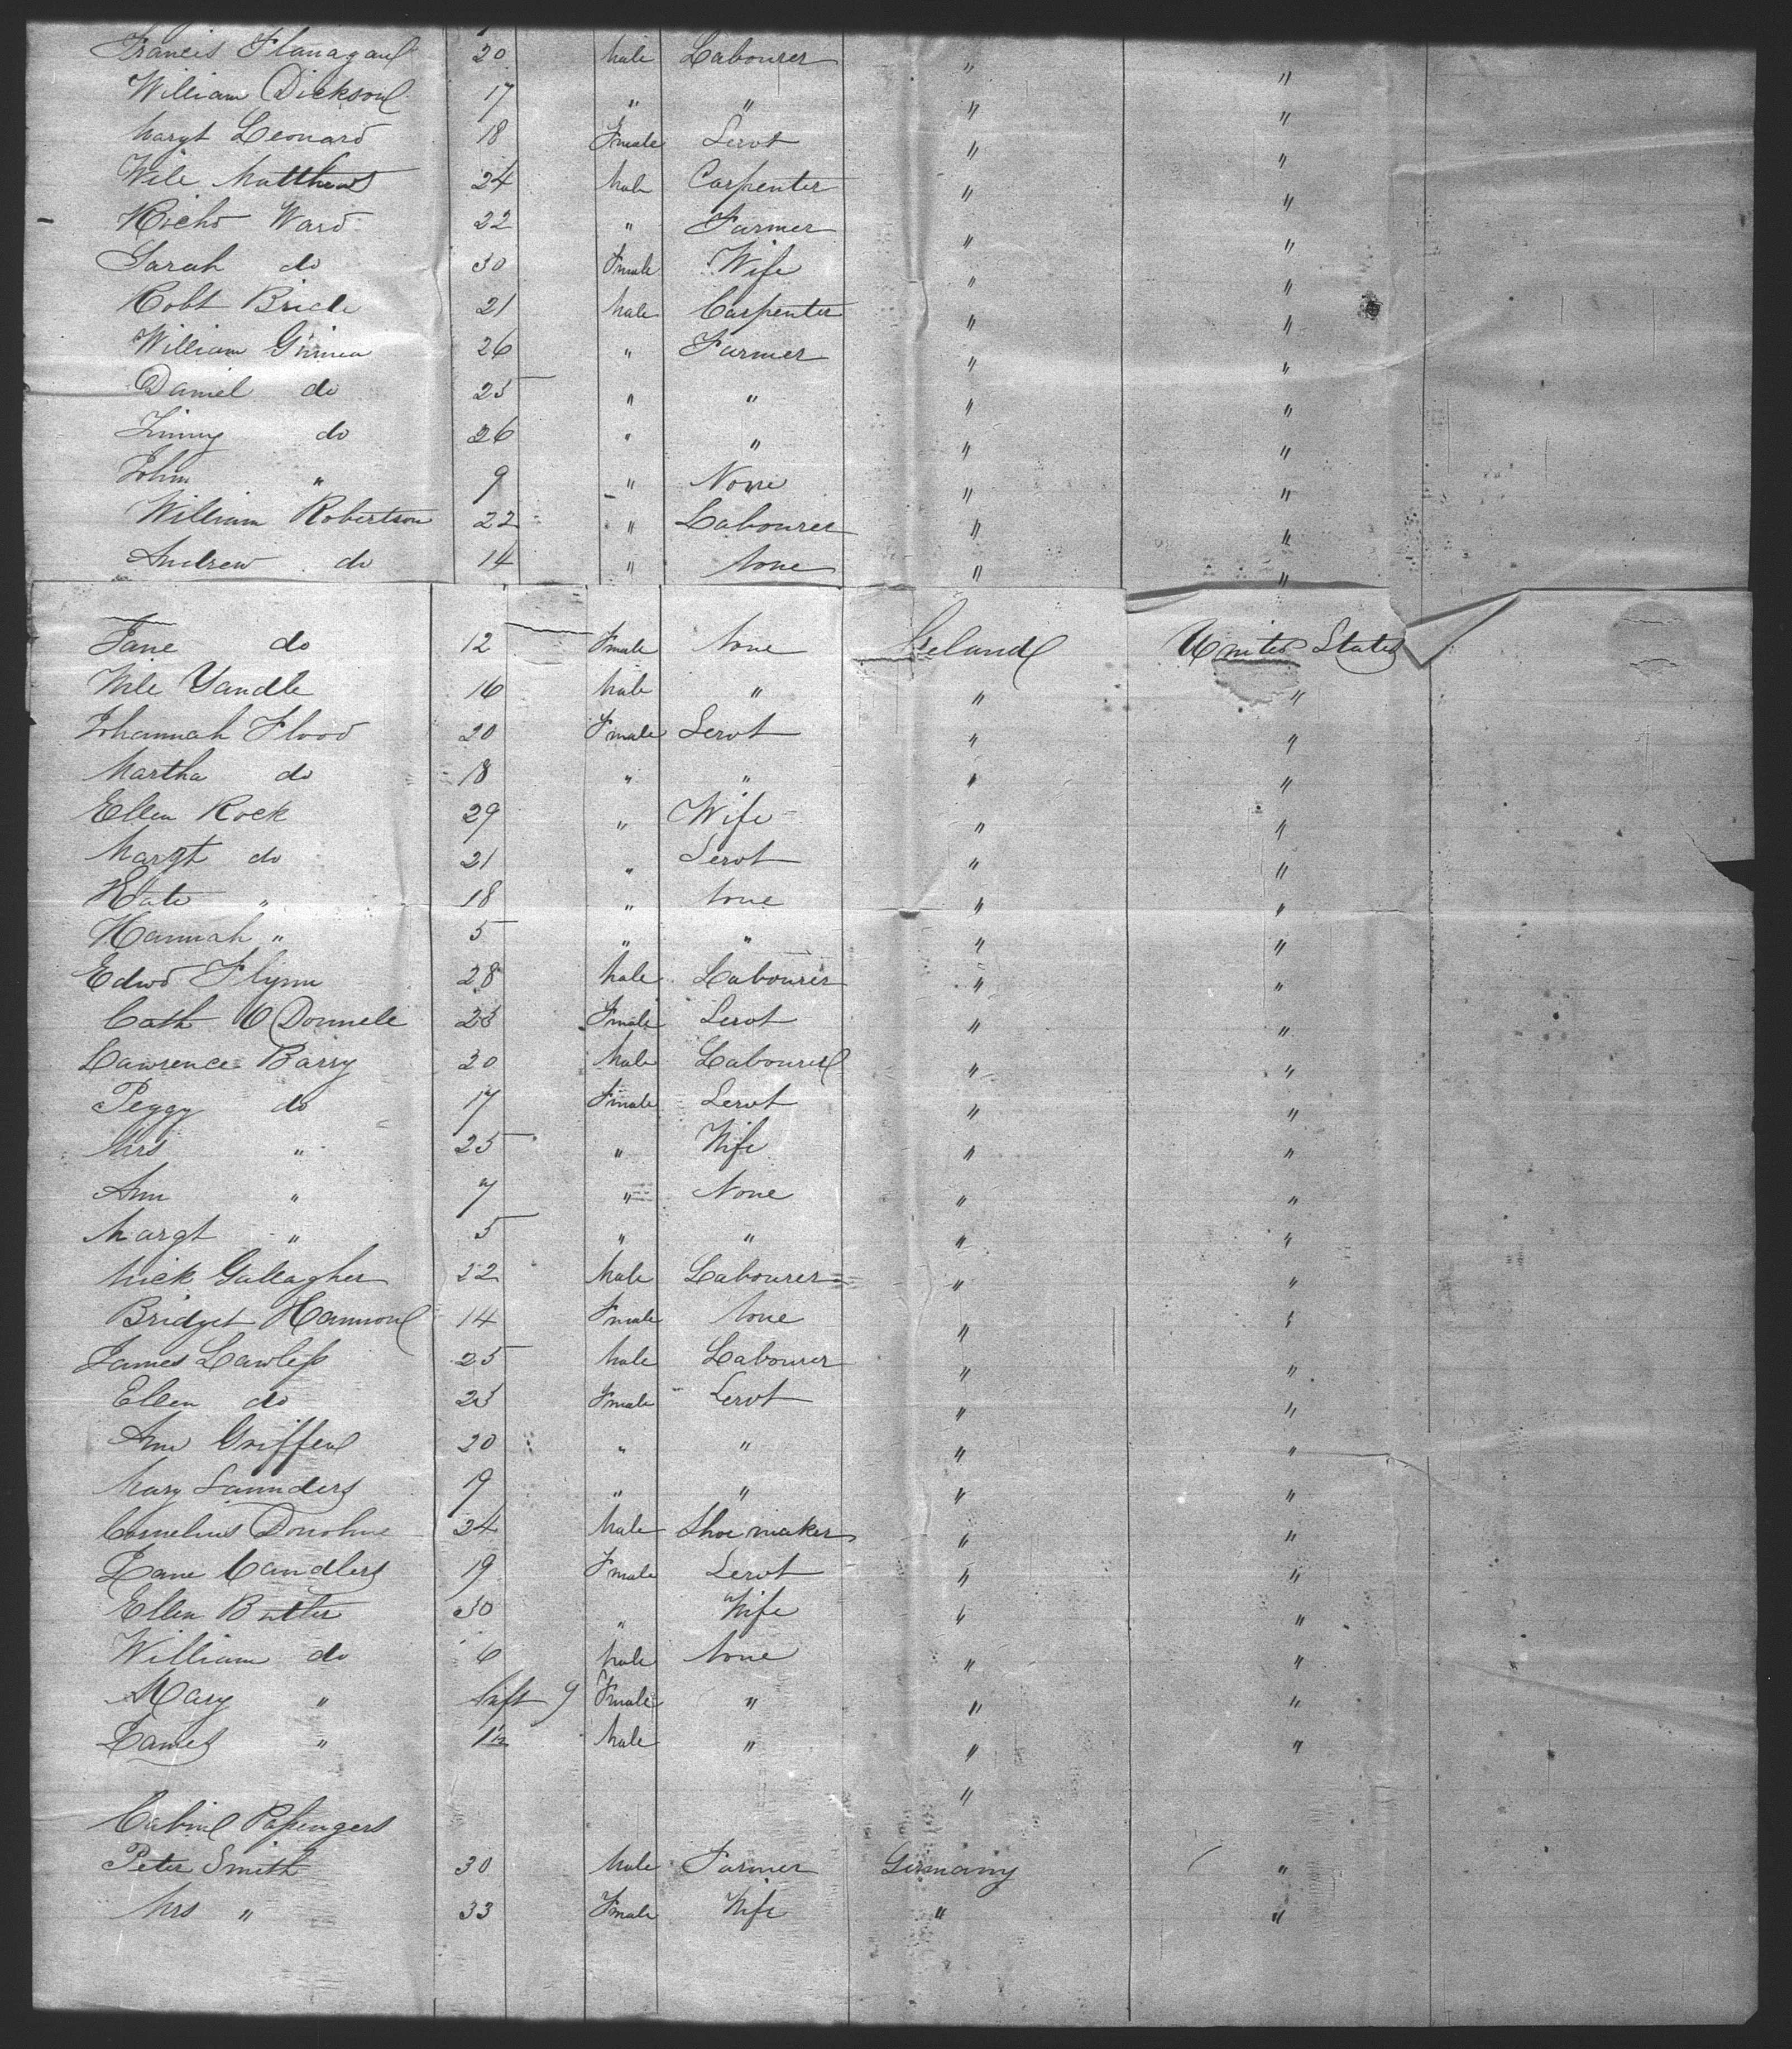 Francis Flanagan 20 Male Labourer " "
William Dickson 17 " " " "
Margt Leonard 18 Female Servt " "
Will Matthews 24 Male Carpenter " "
Richd Ward 22 " Farmer " "
Sarah do 30 Female Wife " "
Robt Bride 21 Male Carpenter " "
William 26 " Farmer " "
Daniel do 25 " " " "
do 26 " " " "
John " 9 " None " "
William Robertson 22 " Labourer " "
Andrew do 14 " None " "
Jane do 12 Female None Ireland United States
Will Yandle 16 Male " " "
Johannah Flood 20 Female Servt " "
Martha do 18 " " " "
Ellen Rock 29 " Wife " "
Margt do 21 " Servt " "
Kate " 18 " None " "
Hannah " 5 " " " "
Edwd Flynn 28 Male Labourer " "
Cath O Donnell 23 Female Servt " "
Lawrence Barry 20 Male Labourer " "
Peggy do 17 Female Servt " "
Mrs " 25 " Wife " "
Ann " 7 " None " "
Margt " 5 " " " "
Mick Gallagher 22 Male Labourer " "
Bridget Hannon 14 Female None " "
James Lawless 25 Male Labourer " "
Ellen do 23 Female Servt " "
Ann Griffen 20 " " " "
Mary Saunders 19 " " " "
Cornelius Donohue 24 Male Shoe maker " "
Jane Candlers 19 Female Servt " "
Ellen Butler 30 " Wife " "
William do 6 Male None " "
Mary " Inft 9 Female " " "
James " 1½ Male " " "
"
Cabin Passengers
Peter Smith 30 Male Farmer Germany "
Mrs " 33 Female Wife " "